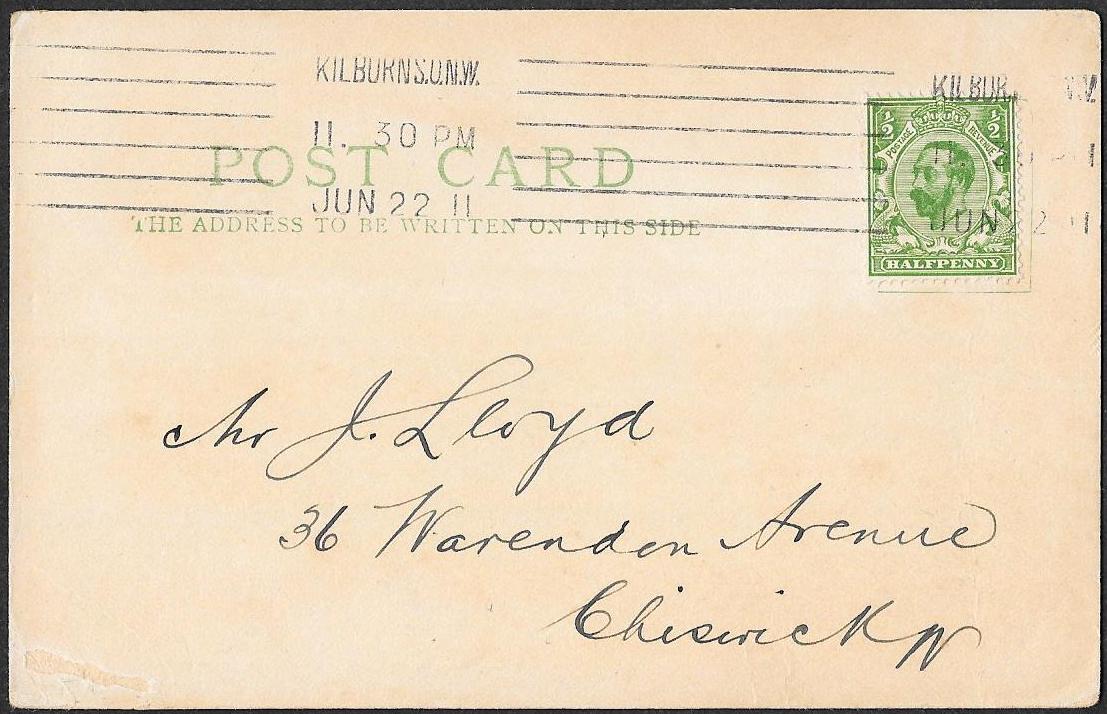 KILBURN S.O.N.W.
11. 30 PM
JUN 22 11
KILBUR
JUN 22 11
½ ½
POSTAGE REVENUE
HALFPENNY
POST CARD
THE ADDRESS TO BE WRITTEN ON THIS SIDE
Mr J. Lloyd
36 Warendon Avenue
Chiswick W